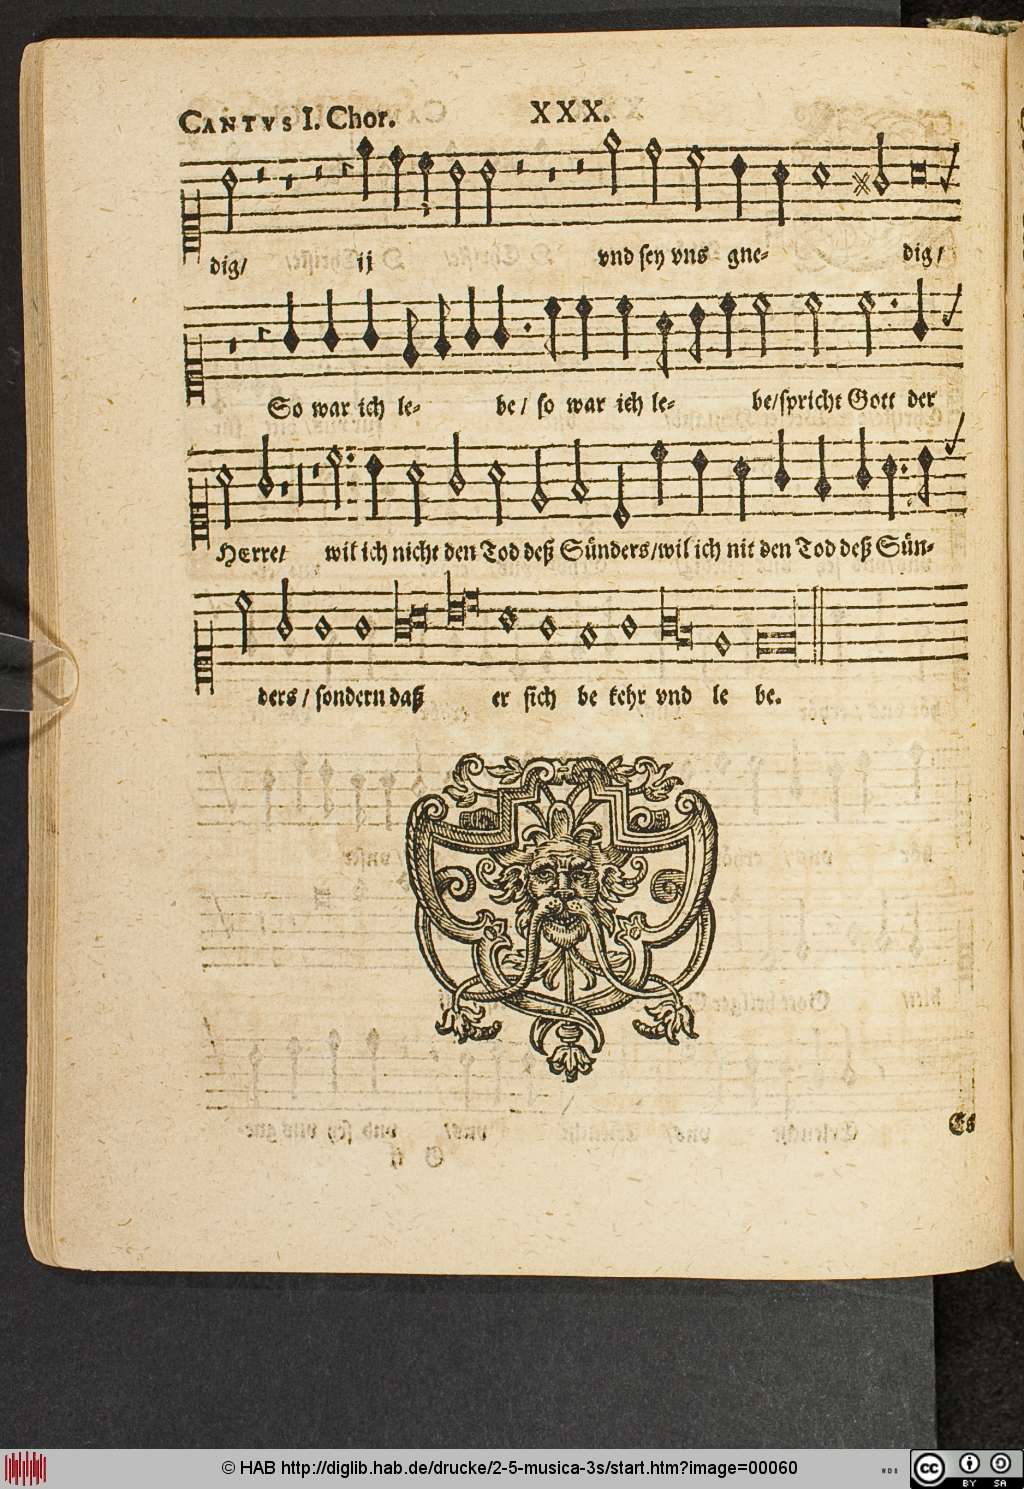 CANTVS I. Chor. XXX.
dig/ ij vnd sey vns gne- dig/
So war ich le- be/ so war ich le- be/spricht Gott der
HErre/ wil ich nicht den Tod deß Sünders/wil ich nit den Tod deß Sün-
ders/sondern daß er sich be kehr vnd le be.
Es
© HAB http://diglib.hab.de/drucke/2-5-musica-3s/start.htm?image=00060
WDB
cc
BY SA